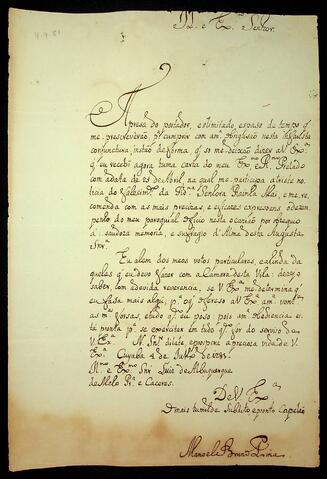 Il. e Ex. Senhor.
A presa do portador, e o limitado espaso de tempo q
me prescreverão, p.ª cumprir com am.ª obrigasão nesta infausta
conjunctura, instão de forma, q só me deixão dizer a V Ex.ª
q eu recebi agora huma carta do meu Ex.mo R.mo Prelado
com a data de 25 de Abril, na qual me participa a triste no
ticia do falecim.to da Senhora Rainha Mai, e me re
comenda com as mais precisas, e eficases expresoens o dezem
penho do meu paroquial oficio nesta ocazião por obzequio
á saudoza memoria, e sufragio d'Alma desta Augusta
Snr.ª
Eu alem dos meus votos particulares, e ainda da
queles q eu devo fazer com a Camera desta Vila: dezejo
saber, com a devida reverencia, se V Ex.ª me determina q
eu fasa mais algũ; p.ª q, Ofereso a V Ex.ª am.ª vont.e
as m.as forsas, e tudo q eu poso; pois am.ª obediencia es
tá pronta p.ª se exercitar em tudo q for do servico de
V. Ex.ª N. Snr. dilate e prospere a preciosa vida de V.
Ex.ª Cuyabá 4 de Julho de 1781
Il.mo e Ex.mo Snr Luis de Albuquerque
de Melo Pr.ª e Caceres.
De V. Ex.ª
O mais humilde Subdito e pronto Capelão
Manoel Bruno Pina